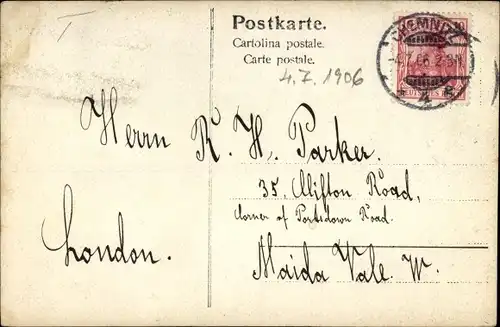 Postkarte.
Cartolina postale.
Carte postale.
CHEMNITZ
4.7.06. 2-3N
10
4.7.1906
Herrn R. H. Parker.
35. Clifton Road,
Corner of Portsdown Road.
London.
Maida Vale. W.